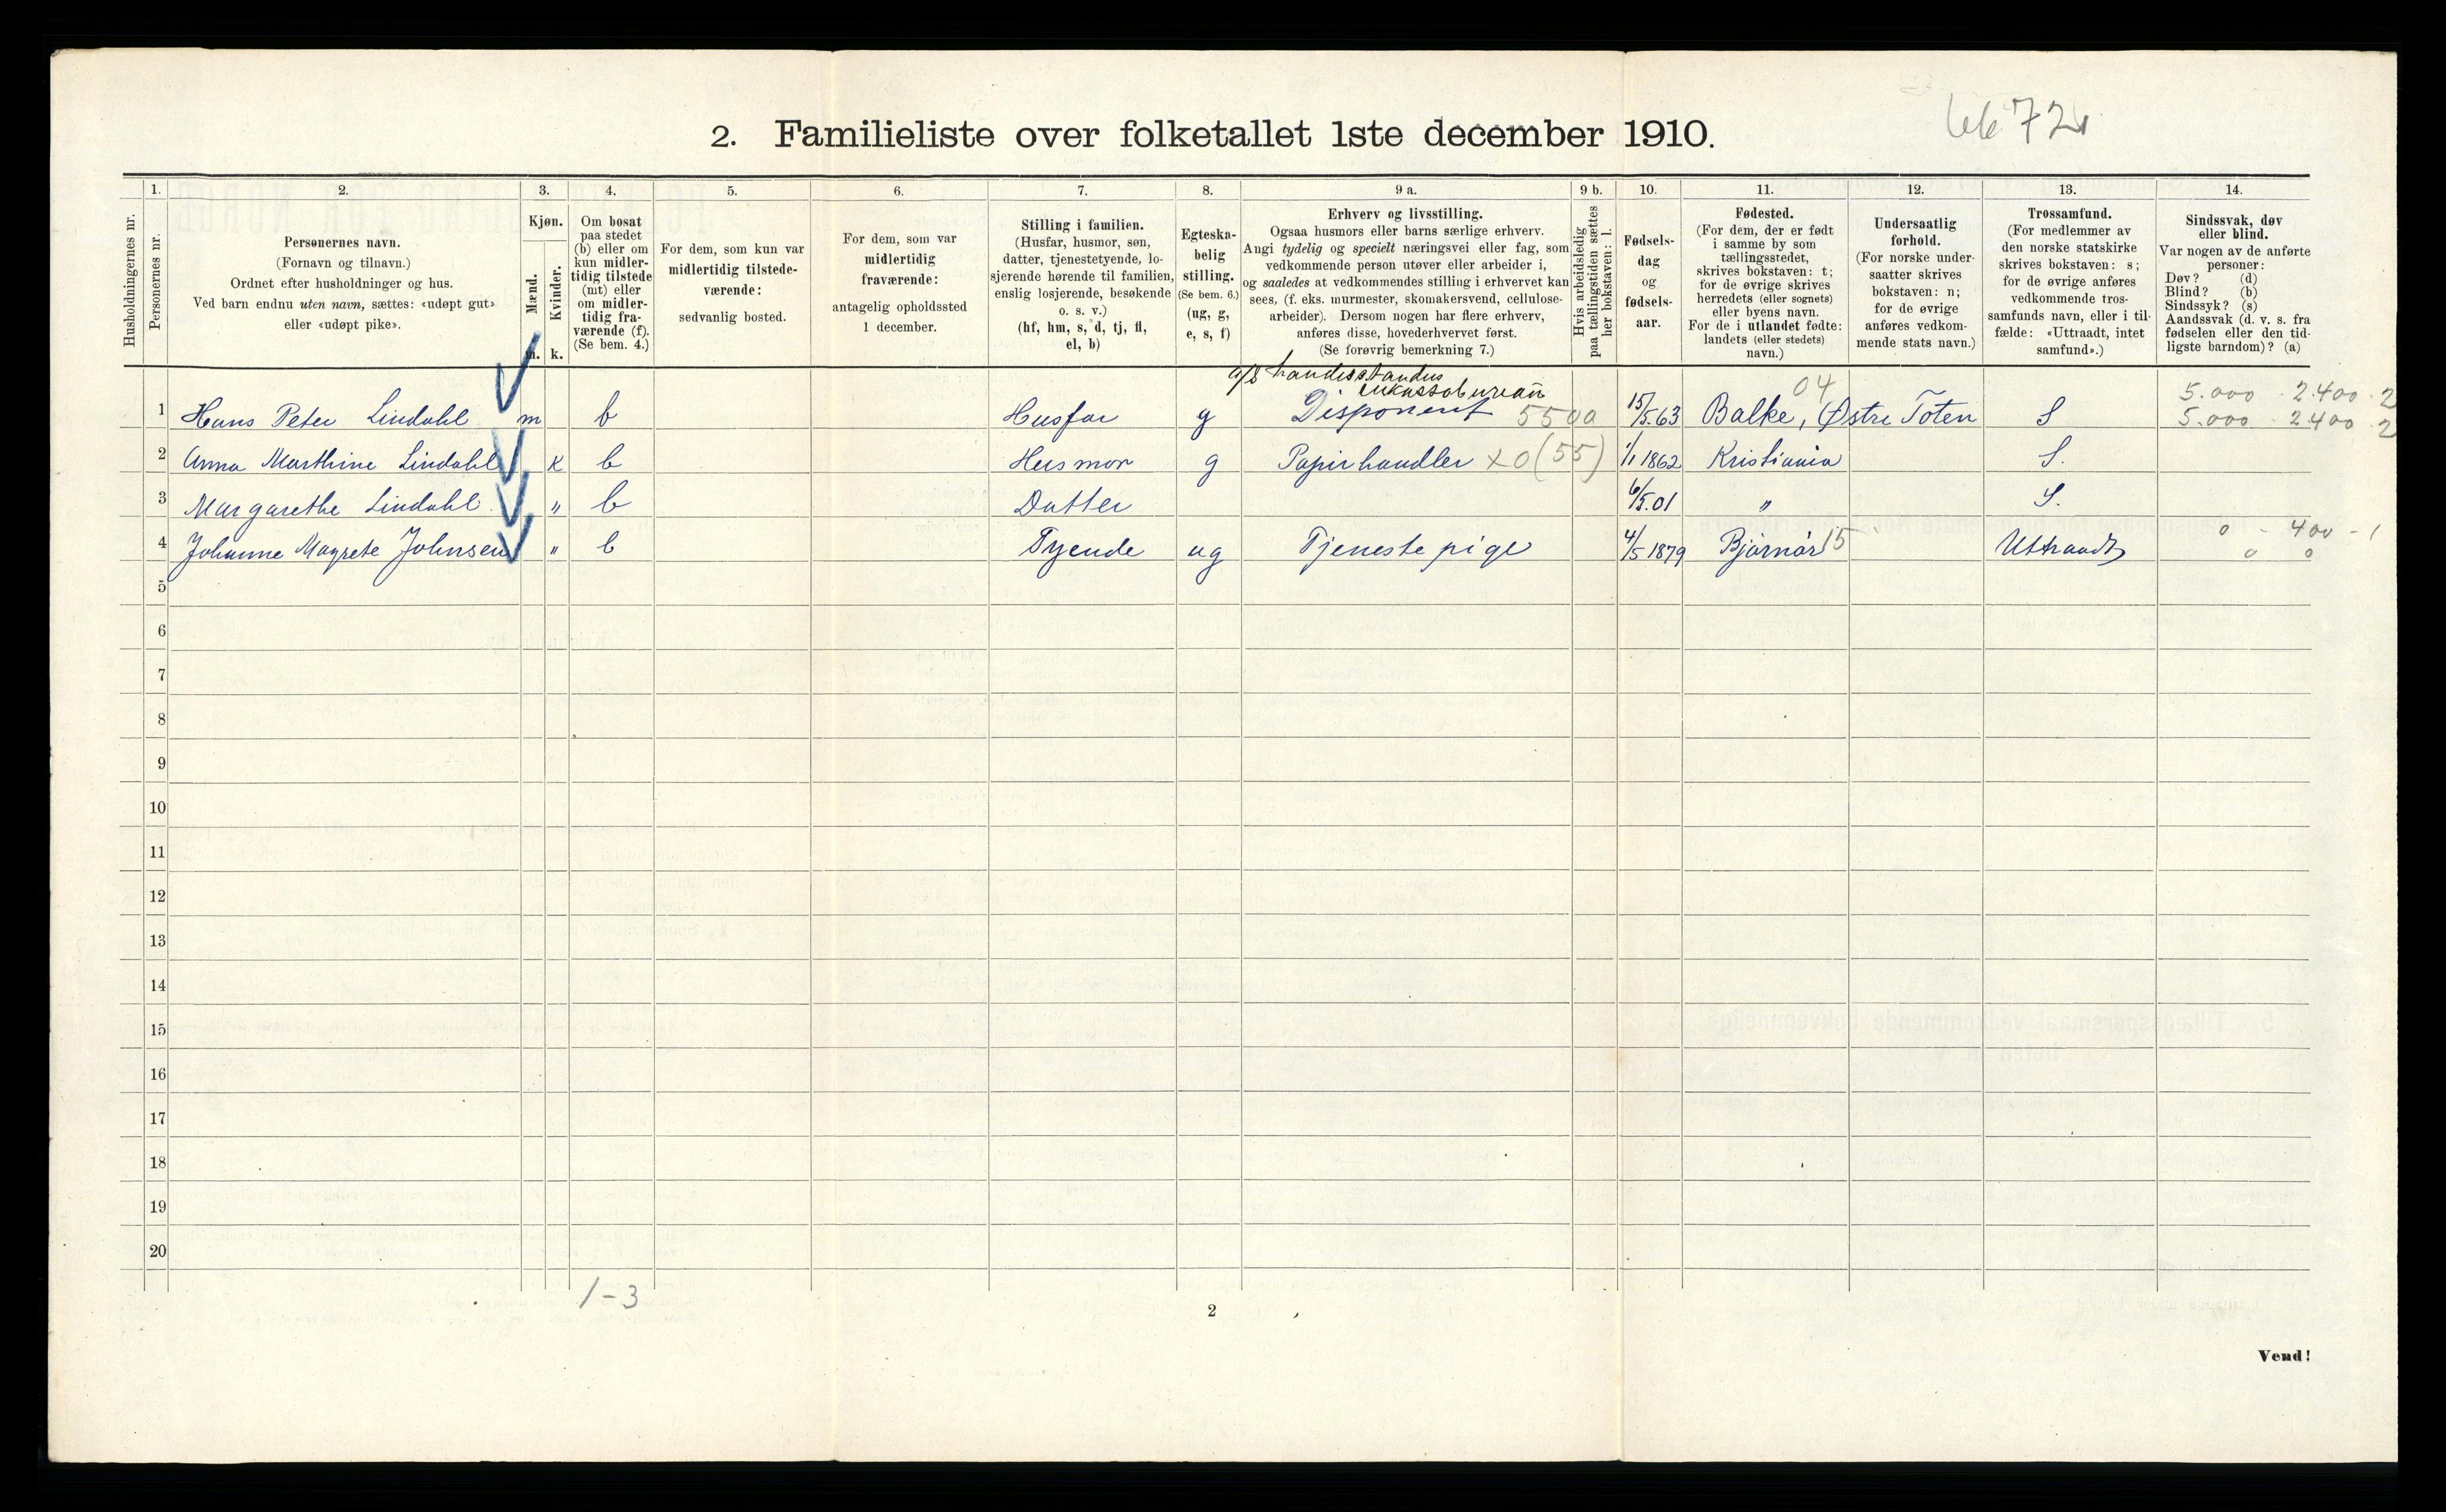 6672
2. Familieliste over folketallet 1ste december 1910.
Husholdningernes nr.
1. Personernes nr.
2. Personernes navn. (Fornavn og tilnavn.) Ordnet efter husholdninger og hus. Ved barn endnu uten navn, sættes: «udøpt gut» eller «udøpt pike».
3. Kjøn. Mænd. m. Kvinder. k.
4. Om bosat paa stedet (b) eller om kun midlertidig tilstede (mt) eller om midlertidig fraværende (f). (Se bem. 4.)
5. For dem, som kun var midlertidig tilstedeværende: sedvanlig bosted.
6. For dem, som var midlertidig fraværende: antagelig opholdssted 1 december.
7. Stilling i familien. (Husfar, husmor, søn, datter, tjenestetyende, losjerende hørende til familien, enslig losjerende, besøkende o. s. v.) (hf, hm, s, d, tj, fl, el, b)
8. Egteskabelig stilling. (Se bem. 6.) (ug, g, e, s, f)
9 a. Erhverv og livsstilling. Ogsaa husmors eller barns særlige erhverv. Angi tydelig og specielt næringsvei eller fag, som vedkommende person utøver eller arbeider i, og saaledes at vedkommendes stilling i erhvervet kan sees, (f. eks. murmester, skomakersvend, cellulosearbeider). Dersom nogen har flere erhverv, anføres disse, hovederhvervet først. (Se forøvrig bemerkning 7.)
9 b. Hvis arbeidsledig paa tællingstiden sættes her bokstaven: l.
10. Fødselsdag og fødselsaar.
11. Fødested. (For dem, der er født i samme by som tællingsstedet, skrives bokstaven: t; for de øvrige skrives herredets (eller sognets) eller byens navn. For de i utlandet fødte: landets (eller stedets) navn.)
12. Undersaatlig forhold. (For norske undersaatter skrives bokstaven: n; for de øvrige anføres vedkommende stats navn.)
13. Trossamfund. (For medlemmer av den norske statskirke skrives bokstaven: s; for de øvrige anføres vedkommende trossamfunds navn, eller i tilfælde: «Uttraadt, intet samfund».)
14. Sindssvak, døv eller blind. Var nogen av de anførte personer: Døv? (d) Blind? (b) Sindssyk? (s) Aandssvak (d. v. s. fra fødselen eller den tidligste barndom)? (a)
a/s handelsstandens inkassobureau 04 5.000 2.400 . 2
1 Hans Peter Lindahl m b Husfar g Disponent 5500 15/5.63 Balke, Østre Toten S 5.000 2400 . 2
2 Anna Marthine Lindahl k b Husmor g Papirhandler x0 (55) 1/1 1862 Kristiania S.
3 Margarethe Lindahl " b Datter 6/5.01 " S.
0 - 400 - 1
4 Johanne Magrete Johnsen " b Tyende ug Tjenestepige 4/5 1879 Bjørnør 15 Uttraadt 0 0
5
6
7
8
9
10
11
12
13
14
15
16
17
18
19
20
1-3
2
Vend!